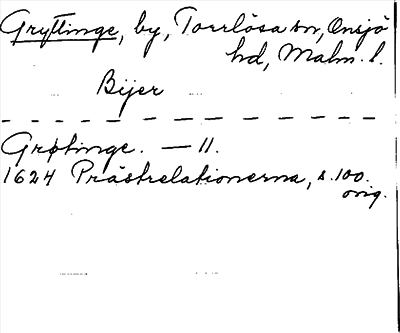 Gryttinge, by, Torrlösa sn, Onsjö
hd, Malm. l.
Bijer
Grøtinge. — 11.
1624 Prästrelationerna, s. 100.
orig.